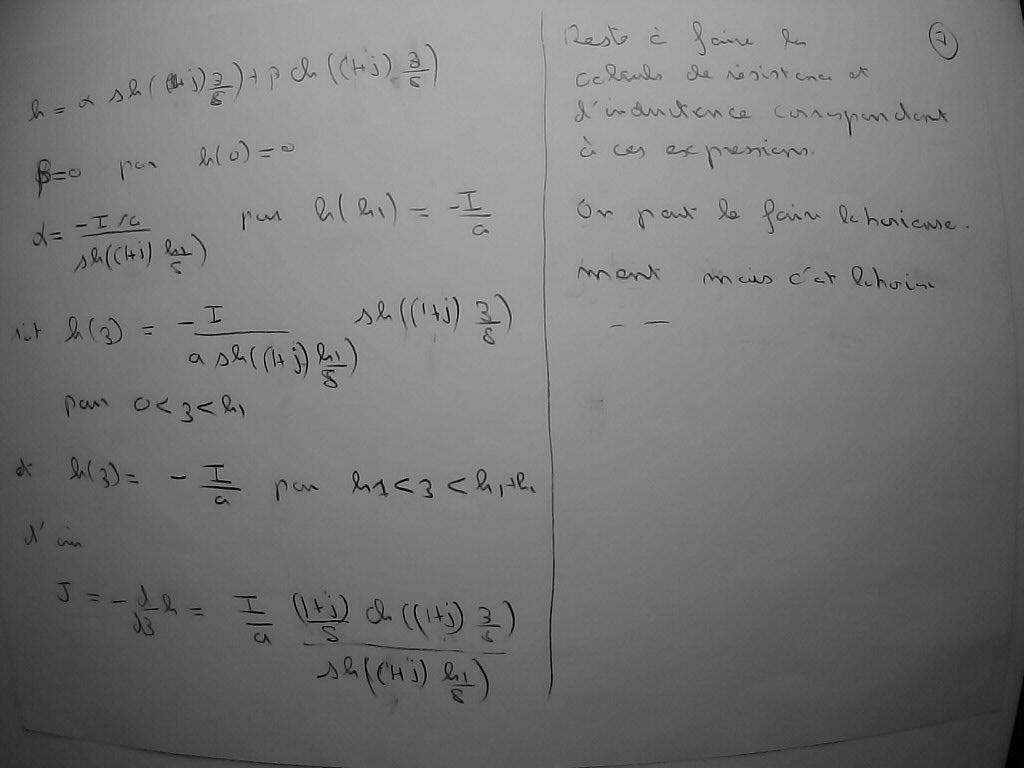 h = α sh((1+j) z/δ) + β ch((1+j) z/δ)
β=0 par h(0)=0
α = (-I/a) / (sh((1+j) h1/δ)) par h(h1) = -I/a
soit h(z) = (-I) / (a sh((1+j) h1/δ)) sh((1+j) z/δ)
pour 0<z<h1
et h(z) = - I/a pour h1<z<h1+h
d'où
J = - d/dz h = I/a ((1+j)/δ ch((1+j) z/δ)) / (sh((1+j) h1/δ))
7
Reste à faire les
calculs de résistance et
d'inductance correspondant
à ces expressions.
On peut le faire laborieuse-
ment mais c'est
_ _